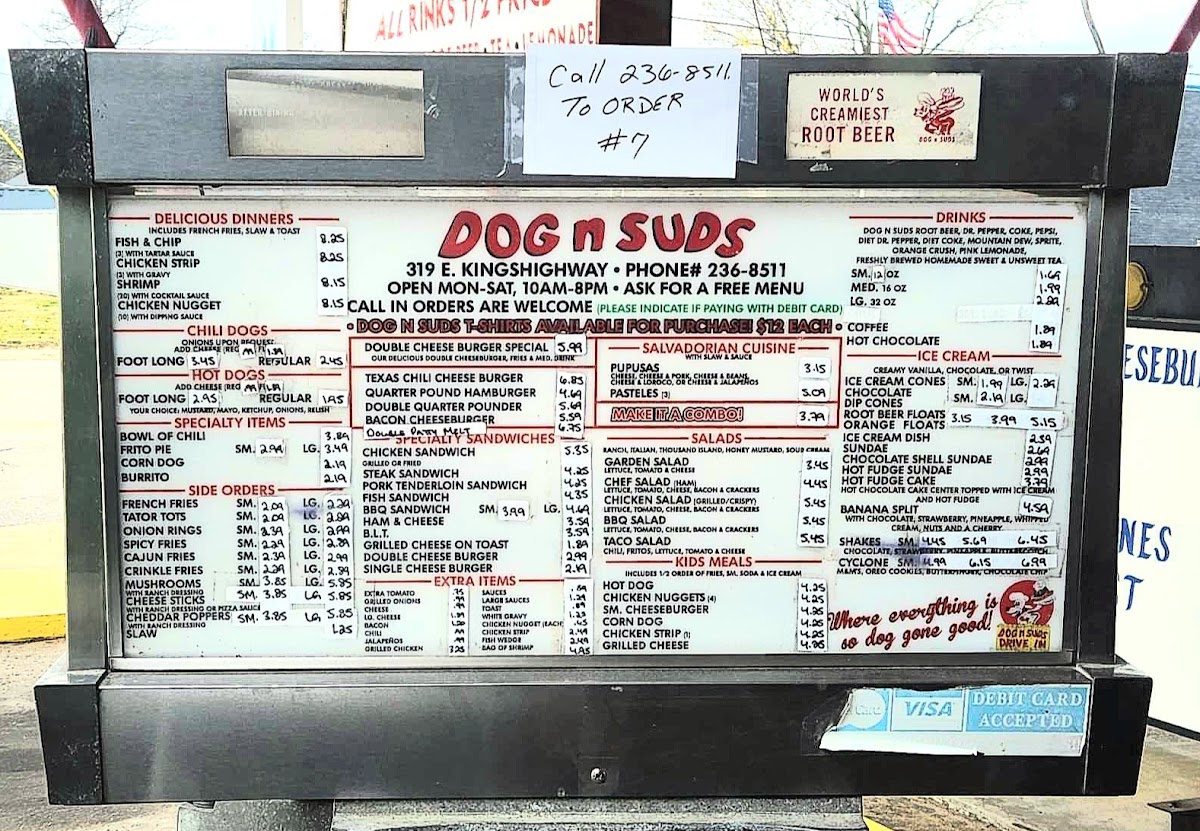 ALL RINKS 1/2 PRICE
TEA • LEMONADE
Call 236-8511.
TO ORDER
#7
WORLD'S
CREAMIEST
ROOT BEER
DOG n SUDS
DELICIOUS DINNERS
INCLUDES FRENCH FRIES, SLAW & TOAST
FISH & CHIP 8.25
(2) WITH TARTAR SAUCE
CHICKEN STRIP 8.25
(3) WITH GRAVY
SHRIMP 8.15
(20) WITH COCKTAIL SAUCE
CHICKEN NUGGET 8.15
(10) WITH DIPPING SAUCE
CHILI DOGS
ONIONS UPON REQUEST
ADD CHEESE (REG 1.39
FOOT LONG 3.45 REGULAR 2.45
HOT DOGS
ADD CHEESE (REG
FOOT LONG 2.95 REGULAR 1.95
YOUR CHOICE: MUSTARD, MAYO, KETCHUP, ONIONS, RELISH
SPECIALTY ITEMS
BOWL OF CHILI 3.89
FRITO PIE SM. 2.99 LG. 3.49
CORN DOG 2.19
BURRITO 2.19
SIDE ORDERS
FRENCH FRIES SM. 2.09 LG. 2.29
TATOR TOTS SM. 2.09 LG. 2.89
ONION RINGS SM. 2.39 LG. 2.99
SPICY FRIES SM. 2.29 LG. 2.89
CAJUN FRIES SM. 2.39 LG. 2.99
CRINKLE FRIES SM. 2.29 LG. 2.89
MUSHROOMS SM. 3.85 LG. 5.85
WITH RANCH DRESSING
CHEESE STICKS SM. 3.85 LG. 5.85
WITH RANCH DRESSING OR PIZZA SAUCE
CHEDDAR POPPERS SM. 3.85 LG. 5.85
WITH RANCH DRESSING
SLAW 1.25
DOG n SUDS
319 E. KINGSHIGHWAY • PHONE# 236-8511
OPEN MON-SAT, 10AM-8PM • ASK FOR A FREE MENU
CALL IN ORDERS ARE WELCOME (PLEASE INDICATE IF PAYING WITH DEBIT CARD)
• DOG N SUDS T-SHIRTS AVAILABLE FOR PURCHASE! $12 EACH •
DOUBLE CHEESE BURGER SPECIAL 5.99
OUR DELICIOUS DOUBLE CHEESEBURGER, FRIES & MED. DRINK
TEXAS CHILI CHEESE BURGER 6.85
QUARTER POUND HAMBURGER 4.69
DOUBLE QUARTER POUNDER 5.69
BACON CHEESEBURGER 5.59
DOUBLE PATTY MELT 6.75
SPECIALTY SANDWICHES
CHICKEN SANDWICH 5.35
GRILLED OR FRIED
STEAK SANDWICH 4.25
PORK TENDERLOIN SANDWICH 4.25
FISH SANDWICH 4.35
BBQ SANDWICH SM. 3.99 LG. 4.69
HAM & CHEESE 3.59
B.L.T. 3.59
GRILLED CHEESE ON TOAST 1.89
DOUBLE CHEESE BURGER 2.99
SINGLE CHEESE BURGER 2.19
EXTRA ITEMS
EXTRA TOMATO .75
GRILLED ONIONS
CHEESE
LG. CHEESE
BACON
CHILI
JALAPEÑOS
GRILLED CHICKEN 3.25
SAUCES
LARGE SAUCES 1.29
TOAST
WHITE GRAVY
CHICKEN NUGGET (EACH) .45
CHICKEN STRIP 2.49
FISH WEDGE 2.49
BAG OF SHRIMP 4.95
SALVADORIAN CUISINE
WITH SLAW & SAUCE
PUPUSAS 3.15
CHEESE, CHEESE & PORK, CHEESE & BEANS,
CHEESE & LOROCO, OR CHEESE & JALAPEÑOS
PASTELES (3) 5.09
MAKE IT A COMBO! 3.79
SALADS
RANCH, ITALIAN, THOUSAND ISLAND, HONEY MUSTARD, SOUR CREAM
GARDEN SALAD 3.45
LETTUCE, TOMATO & CHEESE
CHEF SALAD (HAM) 4.45
LETTUCE, TOMATO, CHEESE, BACON & CRACKERS
CHICKEN SALAD (GRILLED/CRISPY) 5.45
LETTUCE, TOMATO, CHEESE, BACON & CRACKERS
BBQ SALAD 5.45
LETTUCE, TOMATO, CHEESE, BACON & CRACKERS
TACO SALAD 5.45
CHILI, FRITOS, LETTUCE, TOMATO & CHEESE
KIDS MEALS
INCLUDES 1/2 ORDER OF FRIES, SM. SODA & ICE CREAM
HOT DOG 4.25
CHICKEN NUGGETS (4) 4.25
SM. CHEESEBURGER 4.25
CORN DOG 4.25
CHICKEN STRIP (1) 4.25
GRILLED CHEESE 4.25
DRINKS
DOG N SUDS ROOT BEER, DR. PEPPER, COKE, PEPSI,
DIET DR. PEPPER, DIET COKE, MOUNTAIN DEW, SPRITE,
ORANGE CRUSH, PINK LEMONADE,
FRESHLY BREWED HOMEMADE SWEET & UNSWEET TEA
SM. 12 OZ 1.69
MED. 16 OZ 1.99
LG. 32 OZ 2.89
COFFEE 1.89
HOT CHOCOLATE 1.89
ICE CREAM
CREAMY VANILLA, CHOCOLATE, OR TWIST
ICE CREAM CONES SM. 1.99 LG. 2.29
CHOCOLATE SM. 2.19 LG.
DIP CONES
ROOT BEER FLOATS 3.15 3.99 5.15
ORANGE FLOATS
ICE CREAM DISH 2.59
SUNDAE 2.69
CHOCOLATE SHELL SUNDAE 2.99
HOT FUDGE SUNDAE 2.99
HOT FUDGE CAKE 3.79
HOT CHOCOLATE CAKE CENTER TOPPED WITH ICE CREAM
AND HOT FUDGE
BANANA SPLIT 4.59
WITH CHOCOLATE, STRAWBERRY, PINEAPPLE, WHIPPED
CREAM, NUTS AND A CHERRY.
SHAKES SM. 4.45 5.69 6.45
CHOCOLATE, STRAWBERRY, PINEAPPLE, BUTTERSCOTCH
CYCLONE SM. 4.99 6.15 6.99
M&M'S, OREO COOKIES, BUTTERFINGER, CHOCOLATE CHIP
Where everything is
so dog gone good!
DOG N SUDS
DRIVE IN
Card
VISA
DEBIT CARD
ACCEPTED
ESEBU
NES
T